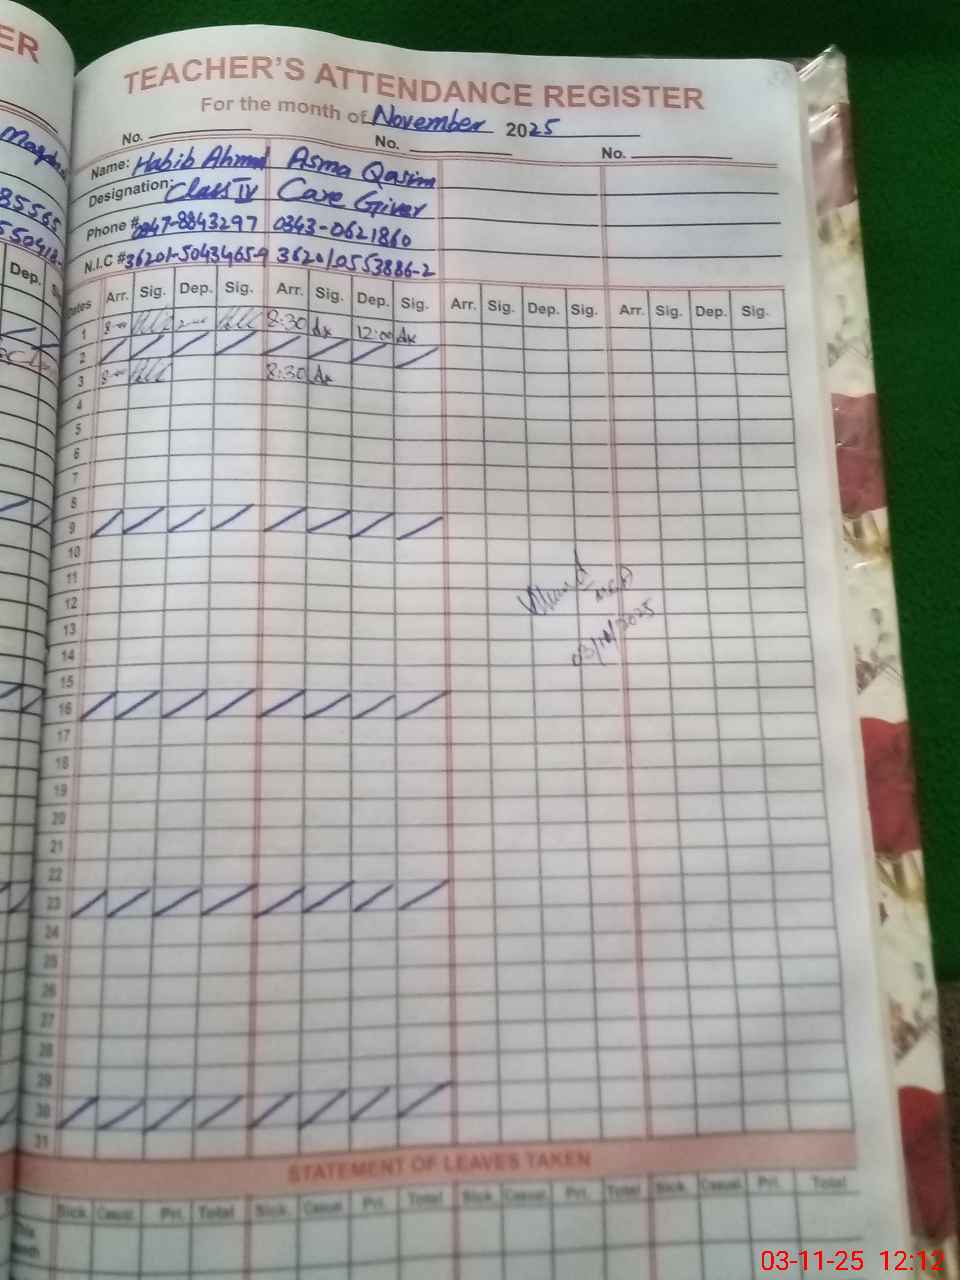 ER
TEACHER'S ATTENDANCE REGISTER
For the month of November 2025
No. No. No.
Name: Habib Ahmad Asma Qasim
Designation: Class IV Care Giver
Phone # 0347-8843297 0343-0621860
N.I.C # 36201-5043465-9 36201 0553886-2
85565
Dep.
Dates Arr. Sig. Dep. Sig. Arr. Sig. Dep. Sig. Arr. Sig. Dep. Sig. Arr. Sig. Dep. Sig.
1 8:30 12:00
2
3 8:30
4
5
6
7
8
9
10
11
12
13
14
15
16
17
18
19
20
21
22
23
24
25
26
27
28
29
30
31
STATEMENT OF LEAVES TAKEN
Sick. Casual. Pri. Total Sick. Casual. Pri. Total Sick. Casual. Pri. Total Sick. Casual. Pri. Total
This
Month
03-11-25 12:12